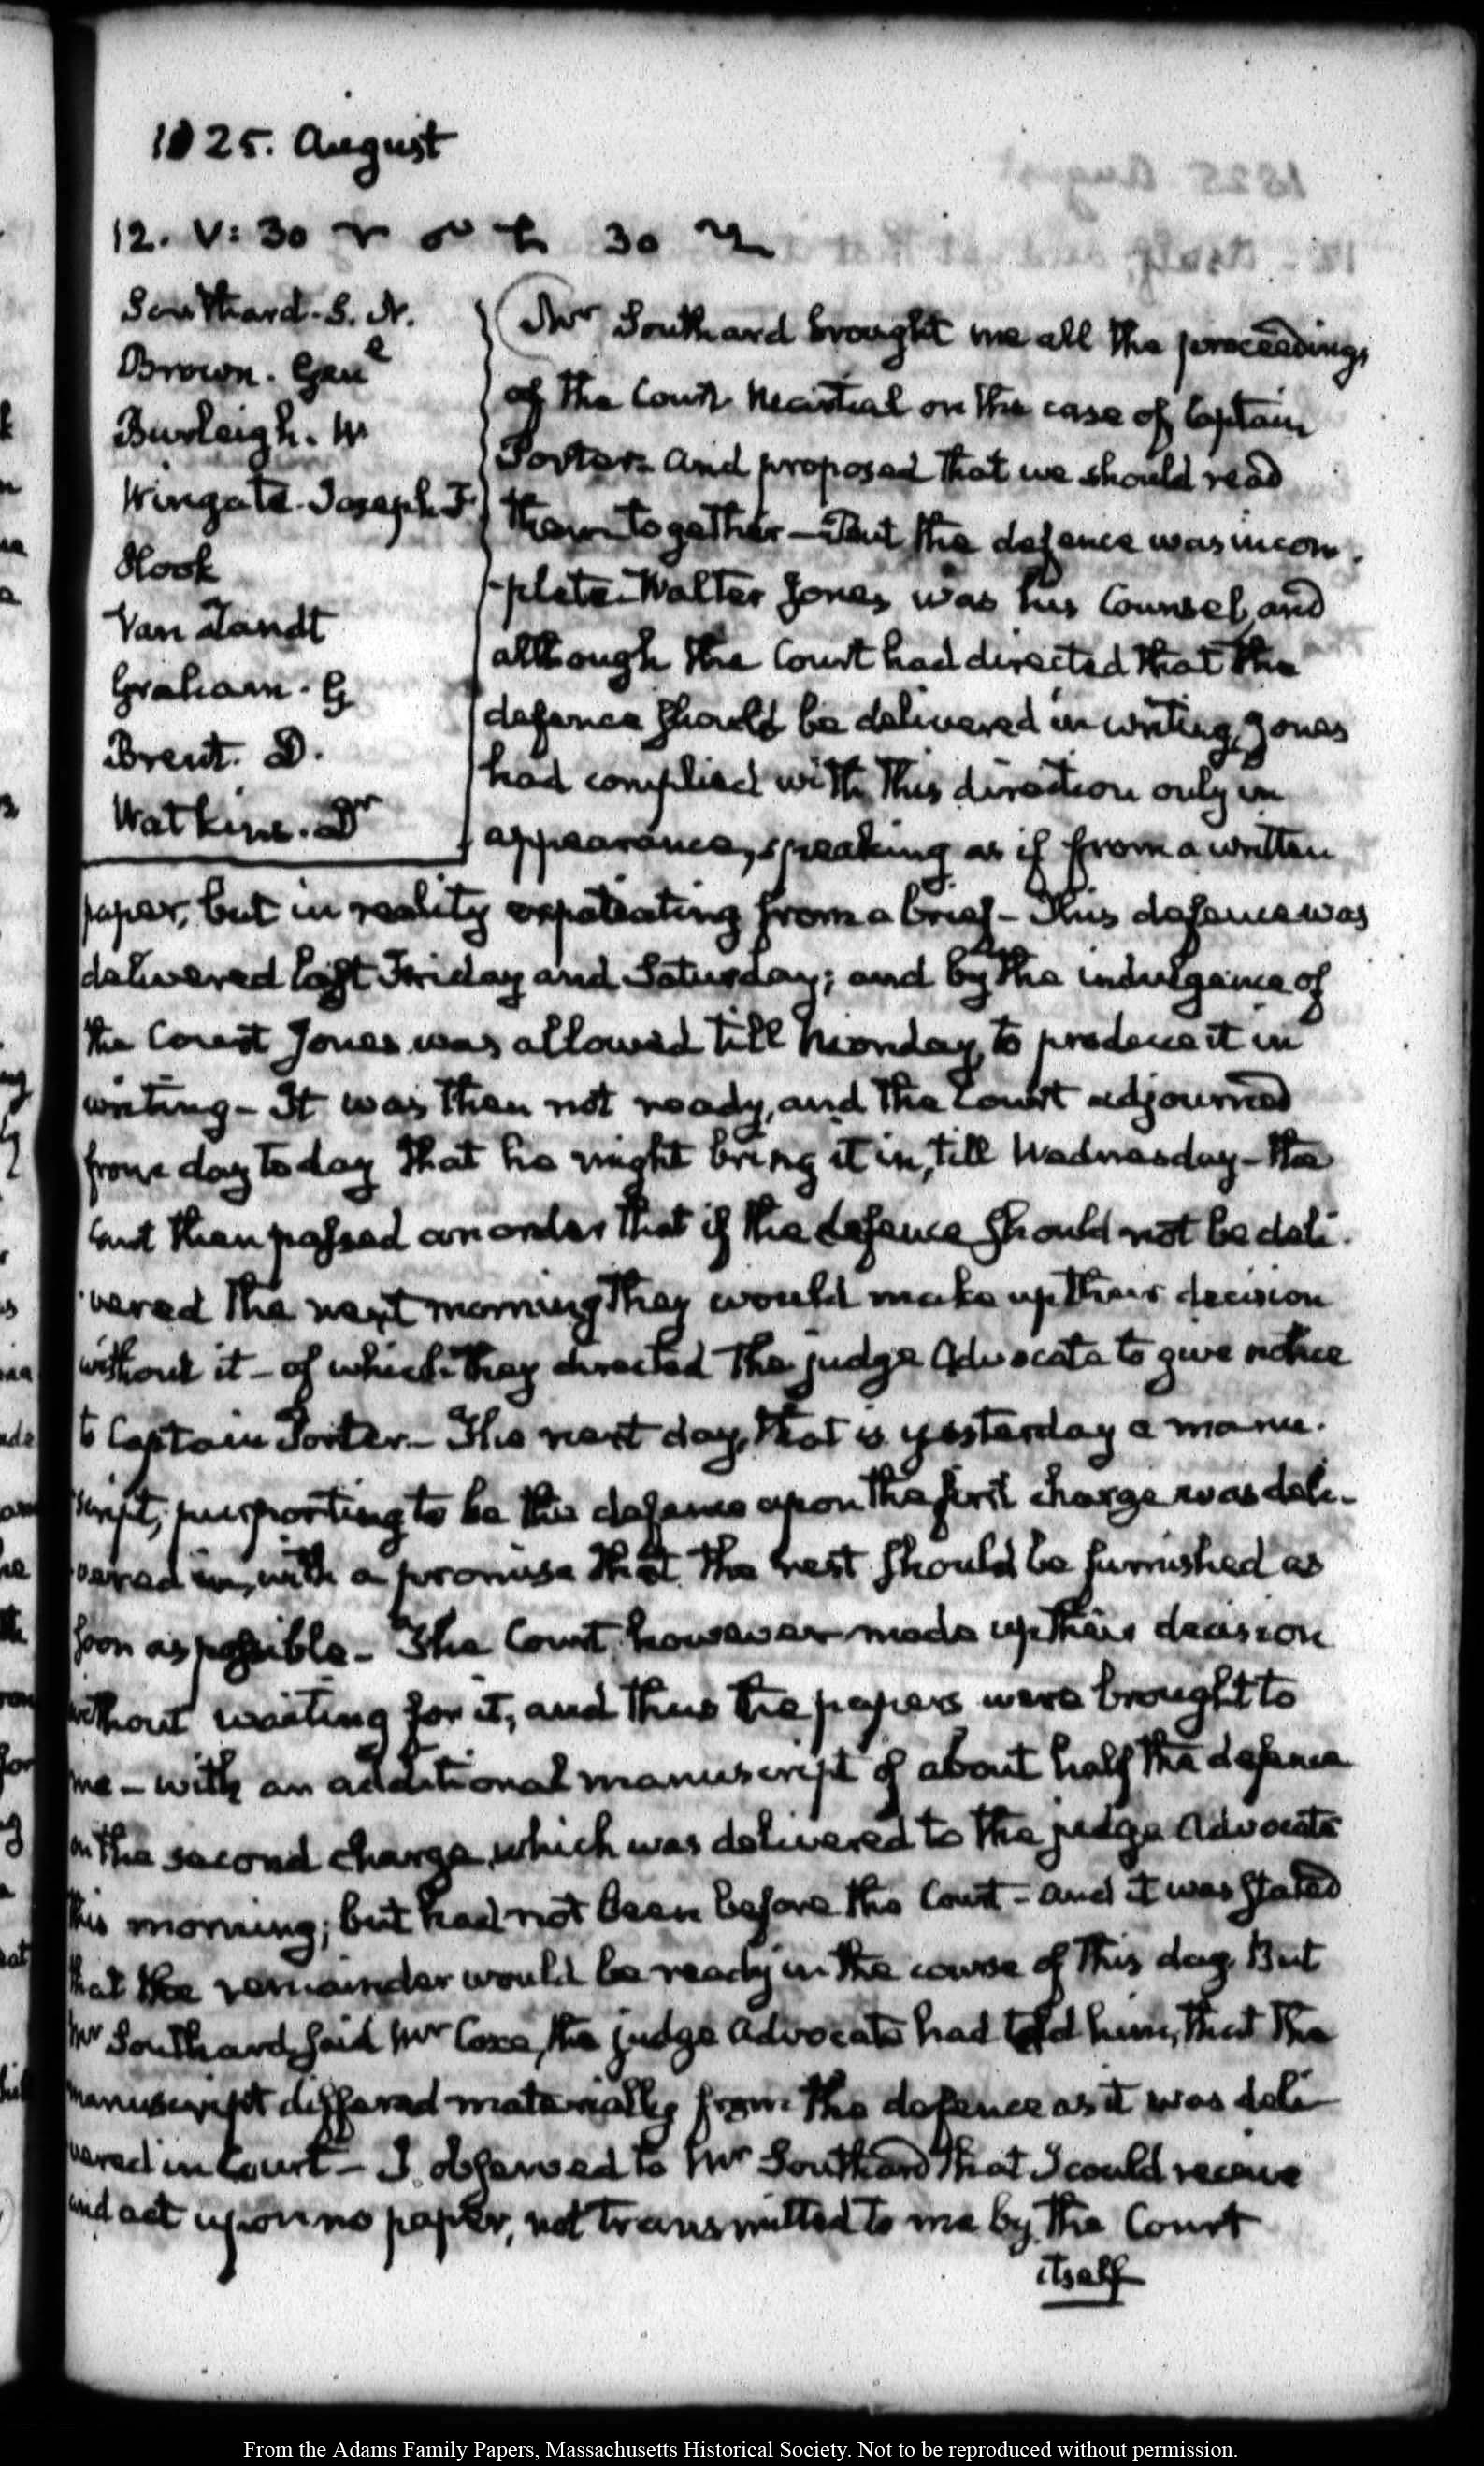 1825. August
12. V: 30
Southard. S. N.
Brown. Genl
Burleigh. W
Wingate. Joseph F.
Hook
Van Zandt
Graham. G
Brent. D.
Watkins. Dr
Mr Southard brought me all the proceedings
of the Court Martial on the case of Captain
Porter and proposed that we should read
them together — But the defence was incom-
-plete. Walter Jones was his Counsel, and
although the Court had directed that the
defence should be delivered in writing, Jones
had complied with this direction only in
appearance, speaking as if from a written
paper, but in reality expatiating from a brief — This defence was
delivered last Friday and Saturday; and by the indulgence of
the Court Jones was allowed till Monday, to produce it in
writing — It was then not ready, and the Court adjourned
from day to day that he might bring it in, till Wednesday — the
Court then passed an order that if the defence should not be deli-
vered the next morning they would make up their decision
without it — of which they directed the judge Advocate to give notice
to Captain Porter — The next day, that is yesterday a manu-
script, purporting to be the defence upon the first charge was deli-
vered in, with a promise that the rest should be furnished as
soon as possible — The Court however made up their decision
without waiting for it, and thus the papers were brought to
me — with an additional manuscript of about half the defence
on the second charge, which was delivered to the judge Advocate
this morning; but had not been before the Court — and it was stated
that the remainder would be ready in the course of this day. But
Mr Southard said Mr Coxe, the judge Advocate had told him, that the
manuscript differed materially from the defence as it was deli-
vered in Court — I observed to Mr Southard that I could receive
and act upon no paper, not transmitted to me by the Court
itself
From the Adams Family Papers, Massachusetts Historical Society. Not to be reproduced without permission.